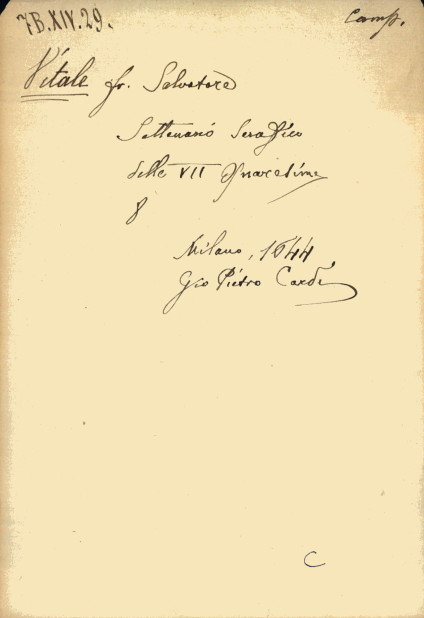 7B.XIV.29.
Camp.
Vitale fr. Salvatore
Settenario Serafico
delle VII Quaresime
8
Milano, 1644
Gio Pietro Cardi
C